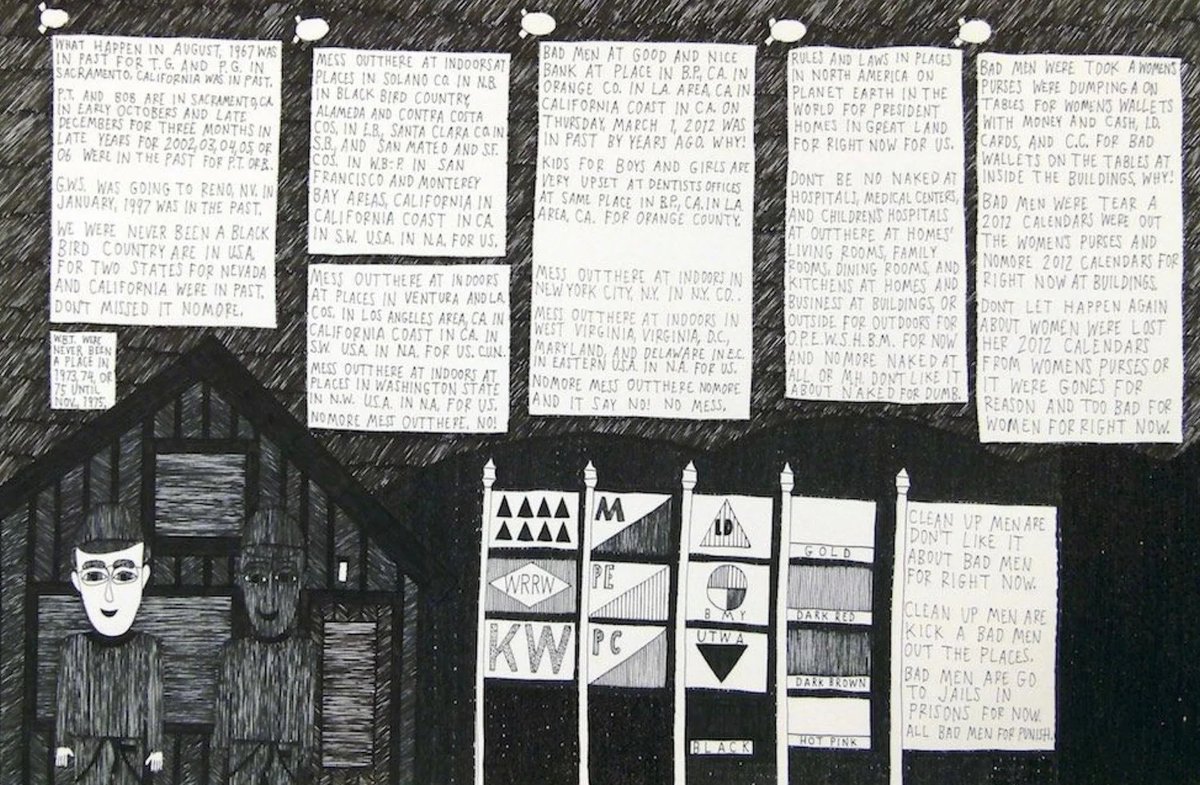 WHAT HAPPEN IN AUGUST, 1967 WAS
IN PAST FOR T.G. AND P.G. IN
SACRAMENTO. CALIFORNIA WAS IN PAST.
P.T. AND BOB ARE IN SACRAMENTO, CA.
IN EARLY OCTOBERS AND LATE
DECEMBERS FOR THREE MONTHS IN
LATE YEARS FOR 2002, 03, 04, 05, OR
06 WERE IN THE PAST FOR P.T. OR B.
G.W.S. WAS GOING TO RENO, NV. IN
JANUARY, 1997 WAS IN THE PAST.
WE WERE NEVER BEEN A BLACK
BIRD COUNTRY ARE IN U.S.A.
FOR TWO STATES FOR NEVADA
AND CALIFORNIA WERE IN PAST.
DON'T MISSED IT NOMORE.
W.B.T. WERE
NEVER BEEN
A PLACE IN
1973, 74, OR
75 UNTIL
NOV., 1975.
MESS OUTTHERE AT INDOORS AT
PLACES IN SOLANO CO. IN N.B.
IN BLACK BIRD COUNTRY,
ALAMEDA AND CONTRA COSTA
COS. IN E.B., SANTA CLARA CO. IN
S.B., AND SAN MATEO AND S.F.
COS. IN W.B-P. IN SAN
FRANCISCO AND MONTEREY
BAY AREAS, CALIFORNIA IN
CALIFORNIA COAST IN CA.
IN S.W. U.S.A. IN N.A. FOR US.
MESS OUTTHERE AT INDOORS
AT PLACES IN VENTURA AND L.A.
COS. IN LOS ANGELES AREA, CA. IN
CALIFORNIA COAST IN CA. IN
S.W. U.S.A. IN N.A. FOR US. C.U.N.
MESS OUTTHERE AT INDOORS AT
PLACES IN WASHINGTON STATE
IN N.W. U.S.A. IN N.A. FOR US.
NOMORE MESS OUTTHERE. NO!
BAD MEN AT GOOD AND NICE
BANK AT PLACE IN B.P., CA. IN
ORANGE CO. IN L.A. AREA, CA. IN
CALIFORNIA COAST IN CA. ON
THURSDAY, MARCH 1, 2012 WAS
IN PAST BY YEARS AGO. WHY!
KIDS FOR BOYS AND GIRLS ARE
VERY UPSET AT DENTISTS OFFICES
AT SAME PLACE IN B.P., CA. IN L.A.
AREA, CA. FOR ORANGE COUNTY.
MESS OUTTHERE AT INDOORS IN
NEW YORK CITY, N.Y. IN N.Y. CO..
MESS OUTTHERE AT INDOORS IN
WEST VIRGINIA, VIRGINIA, D.C.,
MARYLAND, AND DELAWARE IN E.C.
IN EASTERN U.S.A. IN N.A. FOR US.
NOMORE MESS OUTTHERE NOMORE
AND IT SAY NO! NO MESS.
RULES AND LAWS IN PLACES
IN NORTH AMERICA ON
PLANET EARTH IN THE
WORLD FOR PRESIDENT
HOMES IN GREAT LAND
FOR RIGHT NOW FOR US.
DON'T BE NO NAKED AT
HOSPITALS, MEDICAL CENTERS,
AND CHILDREN'S HOSPITALS
AT OUTTHERE AT HOMES'
LIVING ROOMS, FAMILY
ROOMS, DINING ROOMS, AND
KITCHENS AT HOMES AND
BUSINESS AT BUILDINGS, OR
OUTSIDE FOR OUTDOORS FOR
O.P.E.W.S.H.B.M. FOR NOW
AND NOMORE NAKED AT
ALL OR M.H. DON'T LIKE IT
ABOUT NAKED FOR DUMB.
BAD MEN WERE TOOK A WOMEN'S
PURSES WERE DUMPING A ON
TABLES FOR WOMEN'S WALLETS
WITH MONEY AND CASH, I.D.
CARDS, AND C.C. FOR BAD
WALLETS ON THE TABLES AT
INSIDE THE BUILDINGS, WHY!
BAD MEN WERE TEAR A
2012 CALENDARS WERE OUT
THE WOMEN'S PURSES AND
NOMORE 2012 CALENDARS FOR
RIGHT NOW AT BUILDINGS.
DON'T LET HAPPEN AGAIN
ABOUT WOMEN WERE LOST
HER 2012 CALENDARS
FROM WOMEN'S PURSES OR
IT WERE GONES FOR
REASON AND TOO BAD FOR
WOMEN FOR RIGHT NOW.
WRRW
KW
M
PE
PC
LD
B M Y
UTWA
BLACK
GOLD
DARK RED
DARK BROWN
HOT PINK
CLEAN UP MEN ARE
DON'T LIKE IT
ABOUT BAD MEN
FOR RIGHT NOW.
CLEAN UP MEN ARE
KICK A BAD MEN
OUT THE PLACES.
BAD MEN ARE GO
TO JAILS IN
PRISONS FOR NOW.
ALL BAD MEN FOR PUNISH.